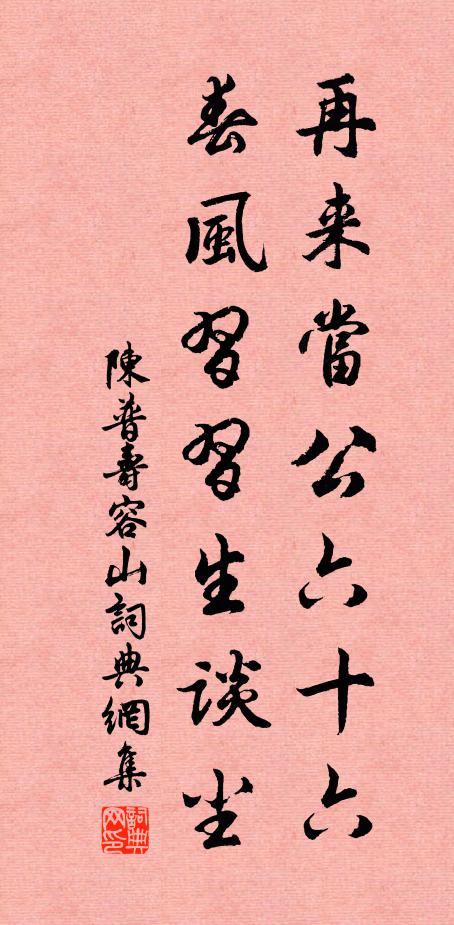 再来當公六十六
春風習習生談坐
陳普壽容山詞典網集
詞典网印